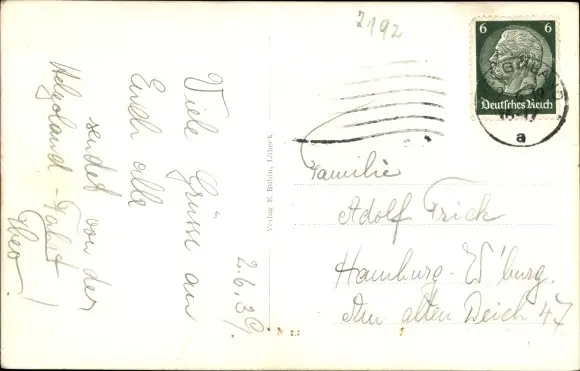 2192
6 6
Deutsches Reich
HELGOLAND
a
Viele Grüsse an
Euch alle
sendet von der
Helgoland-Fahrt
Theo!
2.6.39.
Verlag E. Bühln, Lübeck
Familie
Adolf Frick
Hamburg-W'burg.
Am alten Deich 47